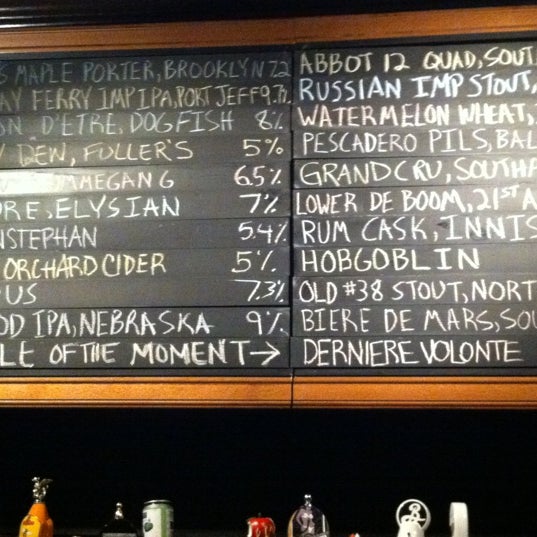 S MAPLE PORTER, BROOKLYN 7.2
AY FERRY IMP IPA, PORT JEFF 9.7%
ON D'ETRE, DOGFISH 8%
DEW, FULLER'S 5%
OMMEGANG 6.5%
ORE, ELYSIAN 7%
NSTEPHAN 5.4%
ORCHARD CIDER 5%
OUS 7.3%
OD IPA, NEBRASKA 9%
LE OF THE MOMENT →
ABBOT 12 QUAD, SOUT
RUSSIAN IMP STOUT,
WATERMELON WHEAT,
PESCADERO PILS, BAL
GRAND CRU, SOUTHA
LOWER DE BOOM, 21ST A
RUM CASK, INNIS
HOBGOBLIN
OLD #38 STOUT, NORT
BIERE DE MARS, SOU
DERNIERE VOLONTE